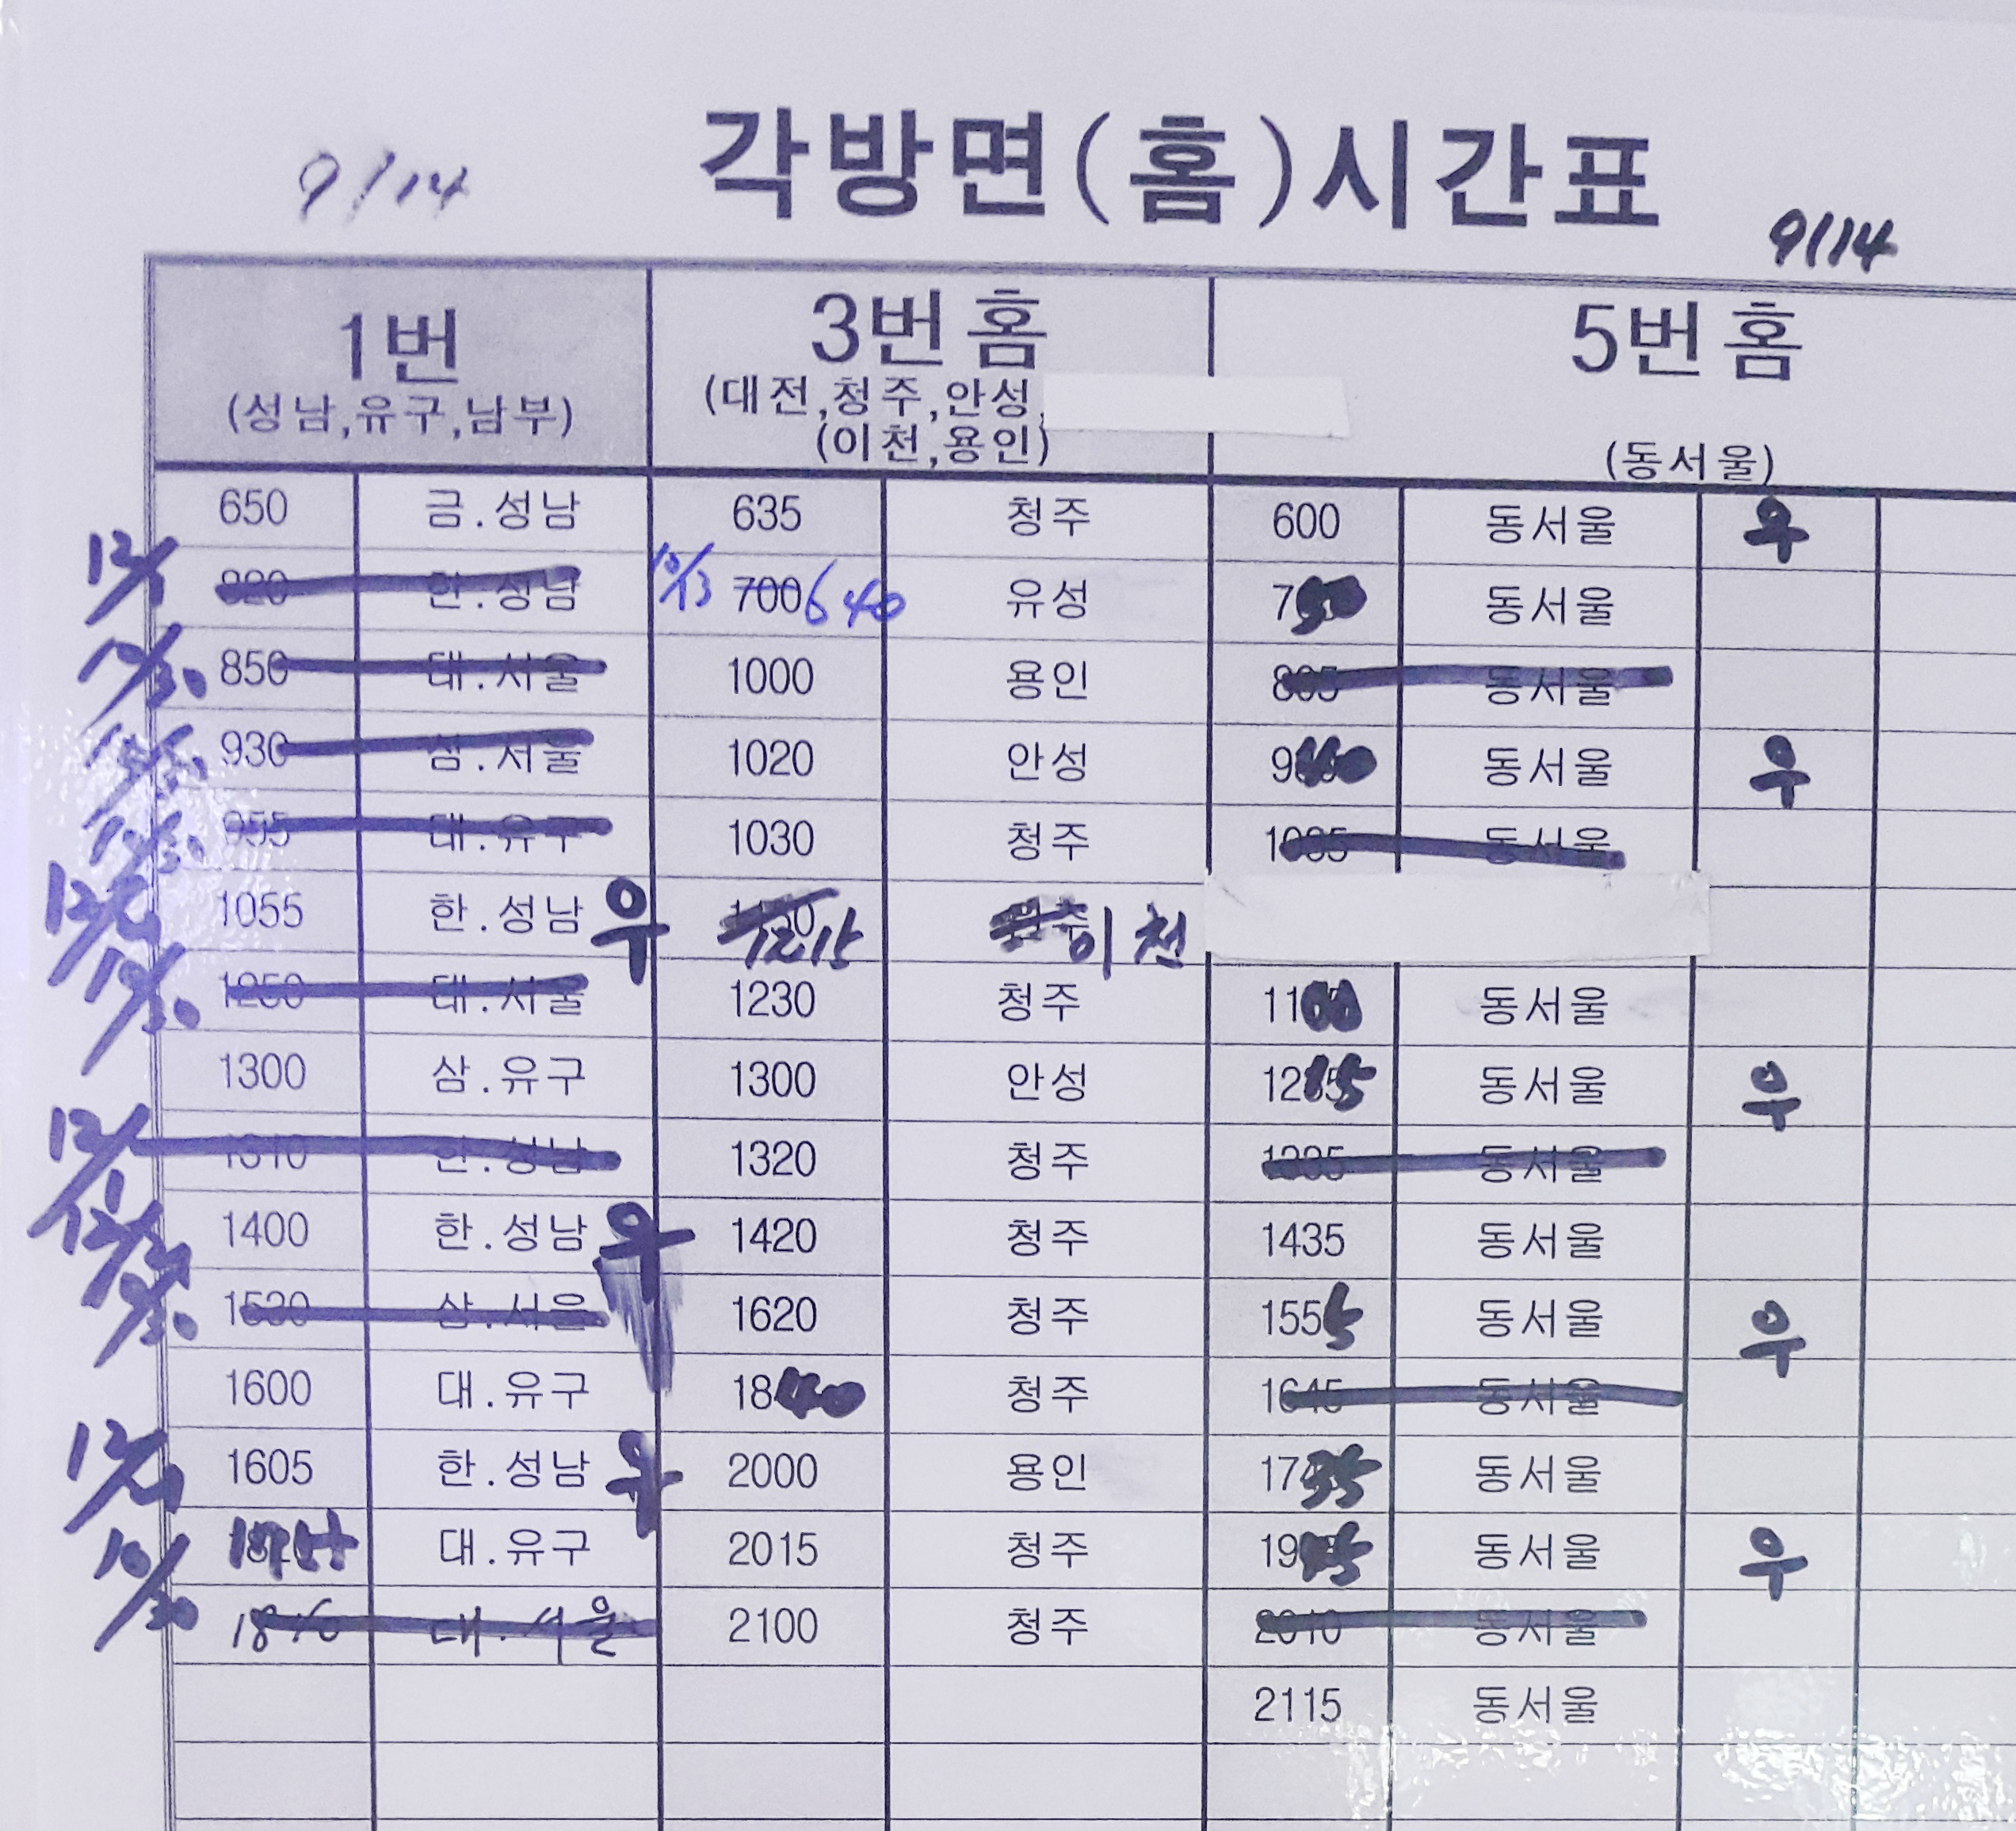 각방면(홈)시간표
9/14
9/14
1번 3번홈 5번홈
(성남,유구,남부) (대전,청주,안성, (동서울)
(이천,용인)
650 금.성남 635 청주 600 동서울 우
12/1 한.성남 10/13 700 640 유성 동서울
10/30 850 대.서울 1000 용인 805 동서울
930 삼.서울 1020 안성 940 동서울 우
955 대.유구 1030 청주 동서울
1055 한.성남 우 1215 이천
10/30 1250 대.서울 1230 청주 1100 동서울
1300 삼.유구 1300 안성 1215 동서울 우
12/1 1310 한.성남 1320 청주 동서울
1400 한.성남 우 1420 청주 1435 동서울
1530 삼.서울 1620 청주 1555 동서울 우
1600 대.유구 1840 청주 1645 동서울
1605 한.성남 우 2000 용인 1735 동서울
10/30 대.유구 2015 청주 동서울 우
대.서울 2100 청주 2010 동서울
2115 동서울